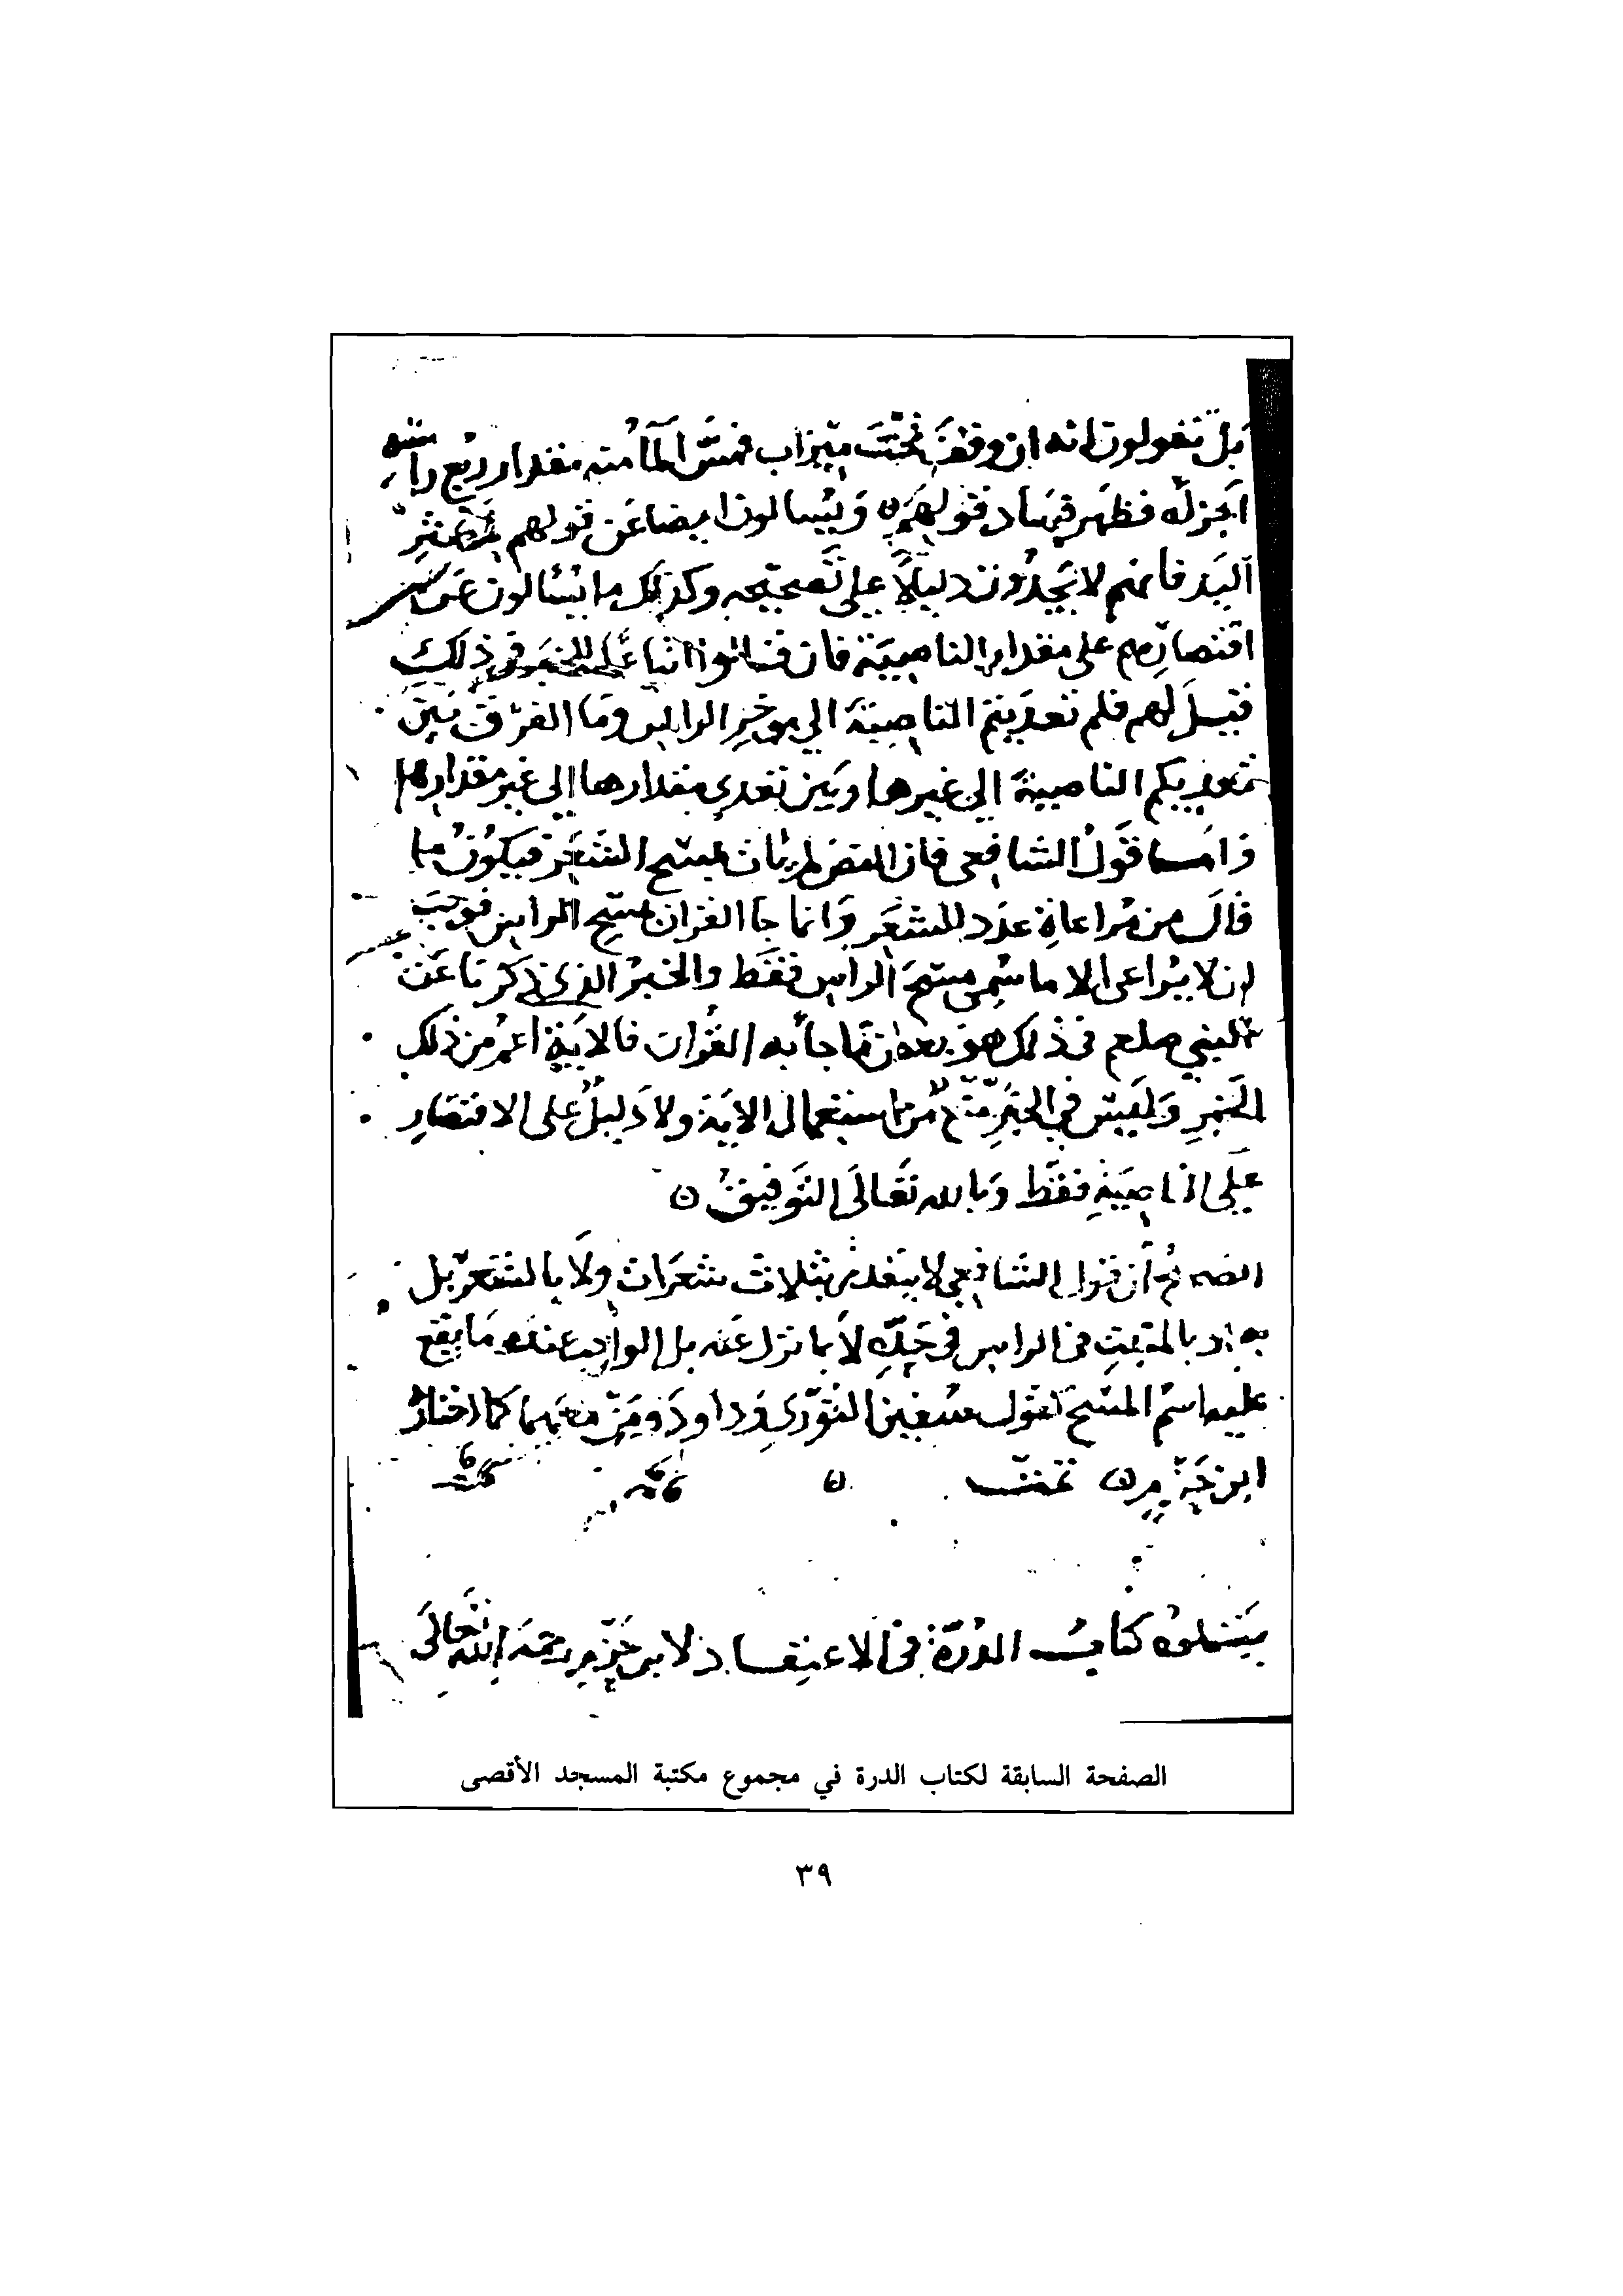 بل تقولون انه ان وقف تحت ميزاب فمس الما منه مقدار ربع راسه
اجزاه فظهر فساد قولهم ۞ ويسالون ايضا عن قولهم
اليد فانهم لا يجدون دليلا على تصحيحه وكذلك ما يسالون عن
اقتصارهم على مقدار الناصية فان قالوا اتباعا للخبر في ذلك
قيل لهم فلم تعديتم الناصية الى موخر الراس وما الفرق بين
تعديكم الناصية الى غيرها وبين تعدي مقدارها الى غير مقدارها
واما قول الشافعي فان النص لم يات بمسح الشعر فيكون ما
قال من مراعاة عدد للشعر وانما جا القران بمسح الراس فوجب
ان لا يراعى الا ما سمي مسح الراس فقط والخبر الذي ذكرنا عن
النبي صلعم في ذلك هو بعض ما جا به القران فالاية اعم من ذلك
الخبر وليس في الخبر منع من استعمال الاية ولا دليل على الاقتصار
على الناصية فقط وبالله تعالى التوفيق ۞
ان قول الشافعي لا يتقدر بثلاث شعرات ولا بالشعر بل
بالمنبت في الراس في حده لا بما نزل عنه بل الواجب عنده ما يقع
عليه اسم المسح كقول سفين الثوري وداود ومن معهما كما اختار
ابن حزم ۞ تمت ۞
يتلوه كتاب الدرة في الاعتقاد لابن حزم رحمه الله تعالى
الصفحة السابقة لكتاب الدرة في مجموع مكتبة المسجد الأقصى
٣٩